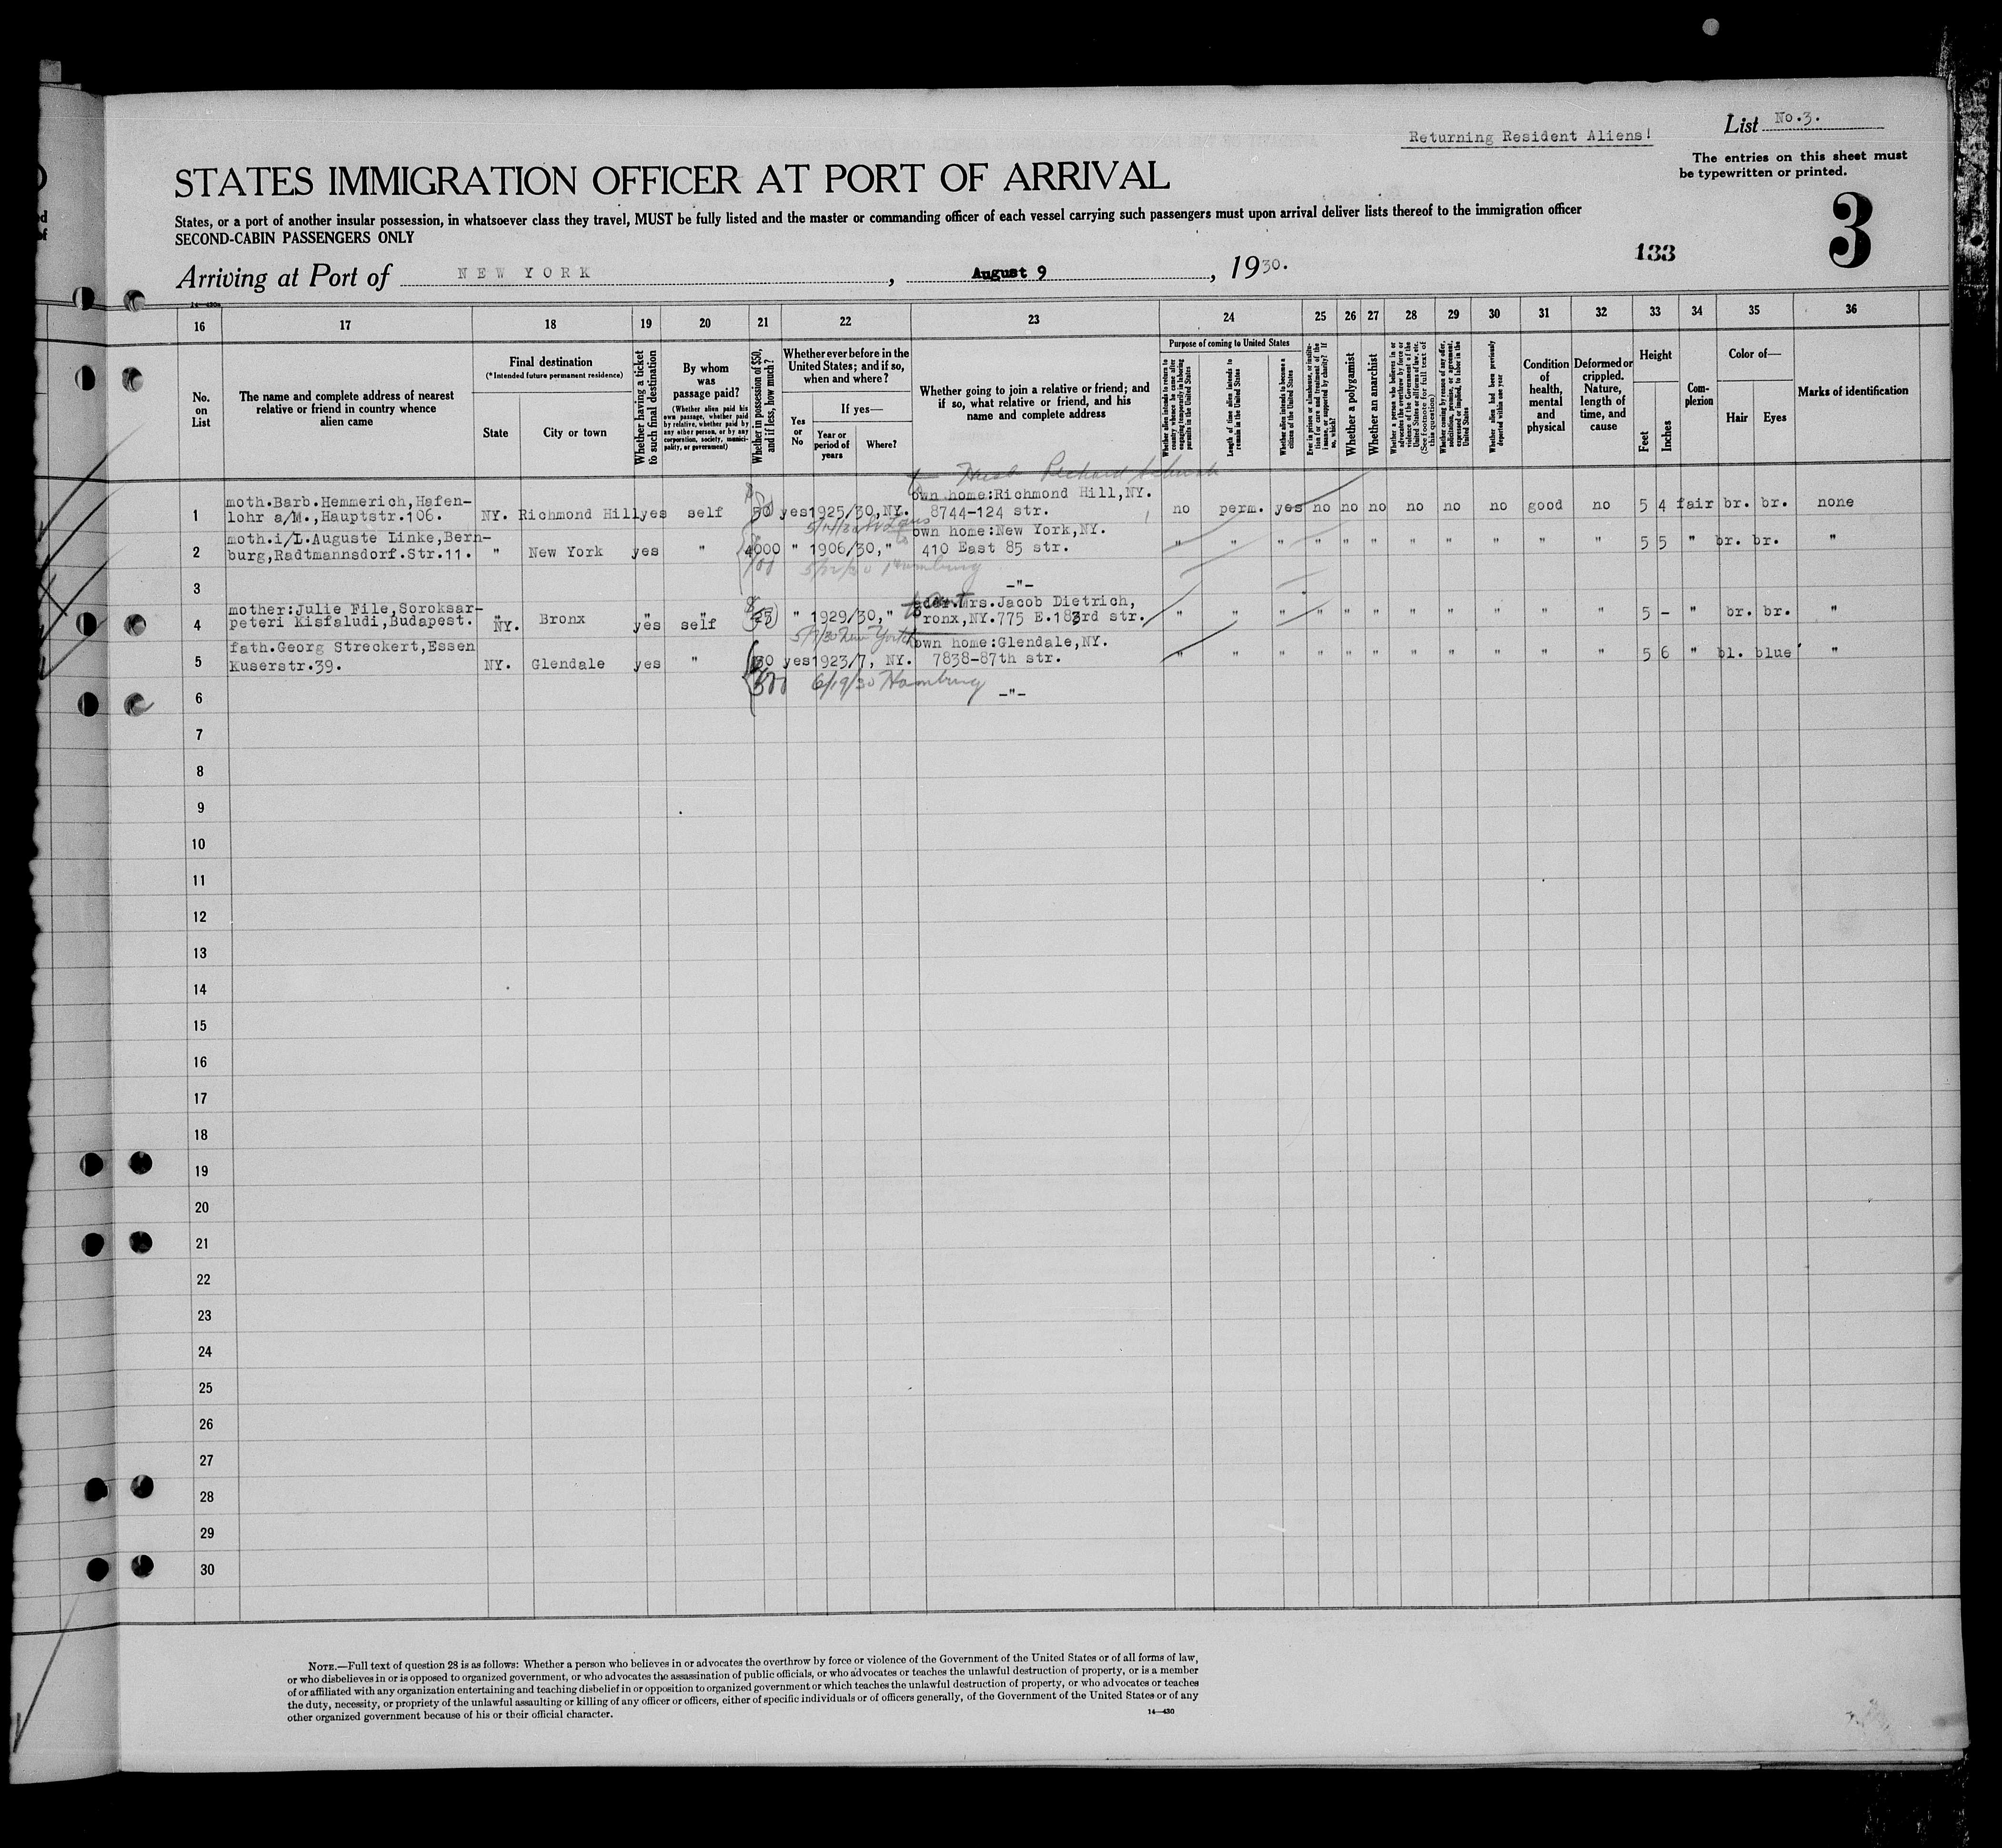 Returning Resident Aliens!
List No.3.
The entries on this sheet must
be typewritten or printed.
STATES IMMIGRATION OFFICER AT PORT OF ARRIVAL
3
States, or a port of another insular possession, in whatsoever class they travel, MUST be fully listed and the master or commanding officer of each vessel carrying such passengers must upon arrival deliver lists thereof to the immigration officer
SECOND-CABIN PASSENGERS ONLY
133
Arriving at Port of NEW YORK, August 9, 1930.
16 17 18 19 20 21 22 23 24 25 26 27 28 29 30 31 32 33 34 35 36
No.
on
List
The name and complete address of nearest
relative or friend in country whence
alien came
Final destination
(*Intended future permanent residence)
State
City or town
Whether having a ticket
to such final destination
By whom
was
passage paid?
(Whether alien paid his
own passage, whether paid
by relative, whether paid by
any other person, or by any
corporation, society, munici-
pality, or government)
Whether in possession of $50,
and if less, how much?
Whether ever before in the
United States; and if so,
when and where?
Yes
or
No
If yes—
Year or
period of
years
Where?
Whether going to join a relative or friend; and
if so, what relative or friend, and his
name and complete address
Purpose of coming to United States
Whether alien intends to return to
country whence he came after
engaging temporarily in laboring
pursuits in the United States
Length of time alien intends to
remain in the United States
Whether alien intends to become a
citizen of the United States
Ever in prison or almshouse, or institu-
tion for care and treatment of the
insane, or supported by charity? If
so, which?
Whether a polygamist
Whether an anarchist
Whether a person who believes in or
advocates the overthrow by force or
violence of the Government of the
United States or all forms of law, etc.
(See footnote for full text of
this question)
Whether coming by reason of any offer,
solicitation, promise, or agreement,
expressed or implied, to labor in the
United States
Whether alien had been previously
deported within one year
Condition
of
health,
mental
and
physical
Deformed or
crippled.
Nature,
length of
time, and
cause
Height
Feet
Inches
Com-
plexion
Color of—
Hair Eyes
Marks of identification
Husb Richard
1 moth.Barb.Hemmerich,Hafen-
lohr a/M.,Hauptstr.106. NY. Richmond Hill yes self 50 yes 1925/30,NY. own home:Richmond Hill,NY.
8744-124 str. no perm. yes no no no no no no good no 5 4 fair br. br. none
2 moth.i/L.Auguste Linke,Bern-
burg,Radtmannsdorf.Str.11. " New York yes " 4000 " 1906/30," own home:New York,NY.
410 East 85 str. " " " " " " " " " " " 5 5 " br. br. "
5/22/30 Hamburg
3 -"-
4 mother:Julie File,Soroksar-
peteri Kisfaludi,Budapest. " NY. Bronx " yes " self " 1929/30," Aunt Mrs.Jacob Dietrich,
Bronx,NY.775 E.183rd str. " " " " " " " " " " " 5 - " br. br. "
5/7/30 New York
5 fath.Georg Streckert,Essen
Kuserstr.39. NY. Glendale yes " yes 1923/7, NY. own home:Glendale,NY.
7838-87th str. " " " " " " " " " " " 5 6 " bl. blue "
6/19/30 Hamburg
6 -"-
7
8
9
10
11
12
13
14
15
16
17
18
19
20
21
22
23
24
25
26
27
28
29
30
NOTE.—Full text of question 28 is as follows: Whether a person who believes in or advocates the overthrow by force or violence of the Government of the United States or of all forms of law,
or who disbelieves in or is opposed to organized government, or who advocates the assassination of public officials, or who advocates or teaches the unlawful destruction of property, or is a member
of or affiliated with any organization entertaining and teaching disbelief in or opposition to organized government or which teaches the unlawful destruction of property, or who advocates or teaches
the duty, necessity, or propriety of the unlawful assaulting or killing of any officer or officers, either of specific individuals or of officers generally, of the Government of the United States or of any
other organized government because of his or their official character.
14—430